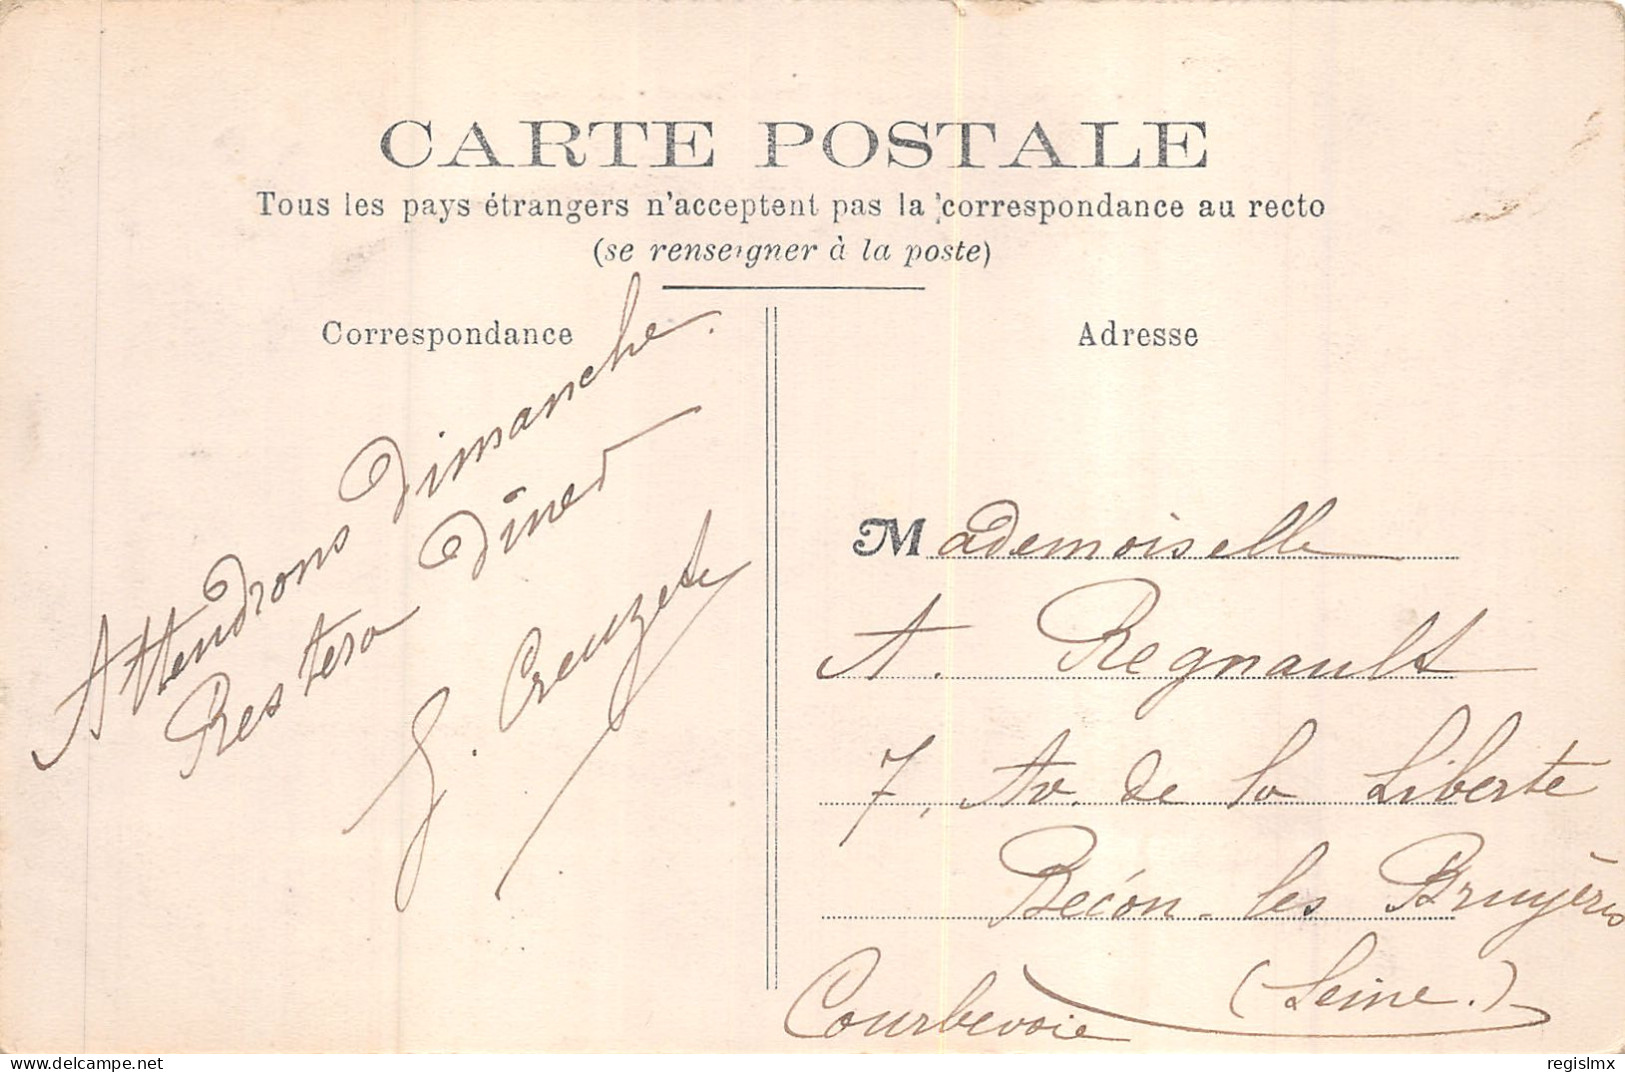 CARTE POSTALE
Tous les pays étrangers n'acceptent pas la correspondance au recto
(se renseigner à la poste)
Correspondance
Adresse
Attendrons Dimanche.
Restera Dîner
G. Creuzet
Mademoiselle
A. Regnault
7, Av. de la Liberte
Bécon-les Bruyères
Courbevoie (Seine.)
delcampe.net
regislmx